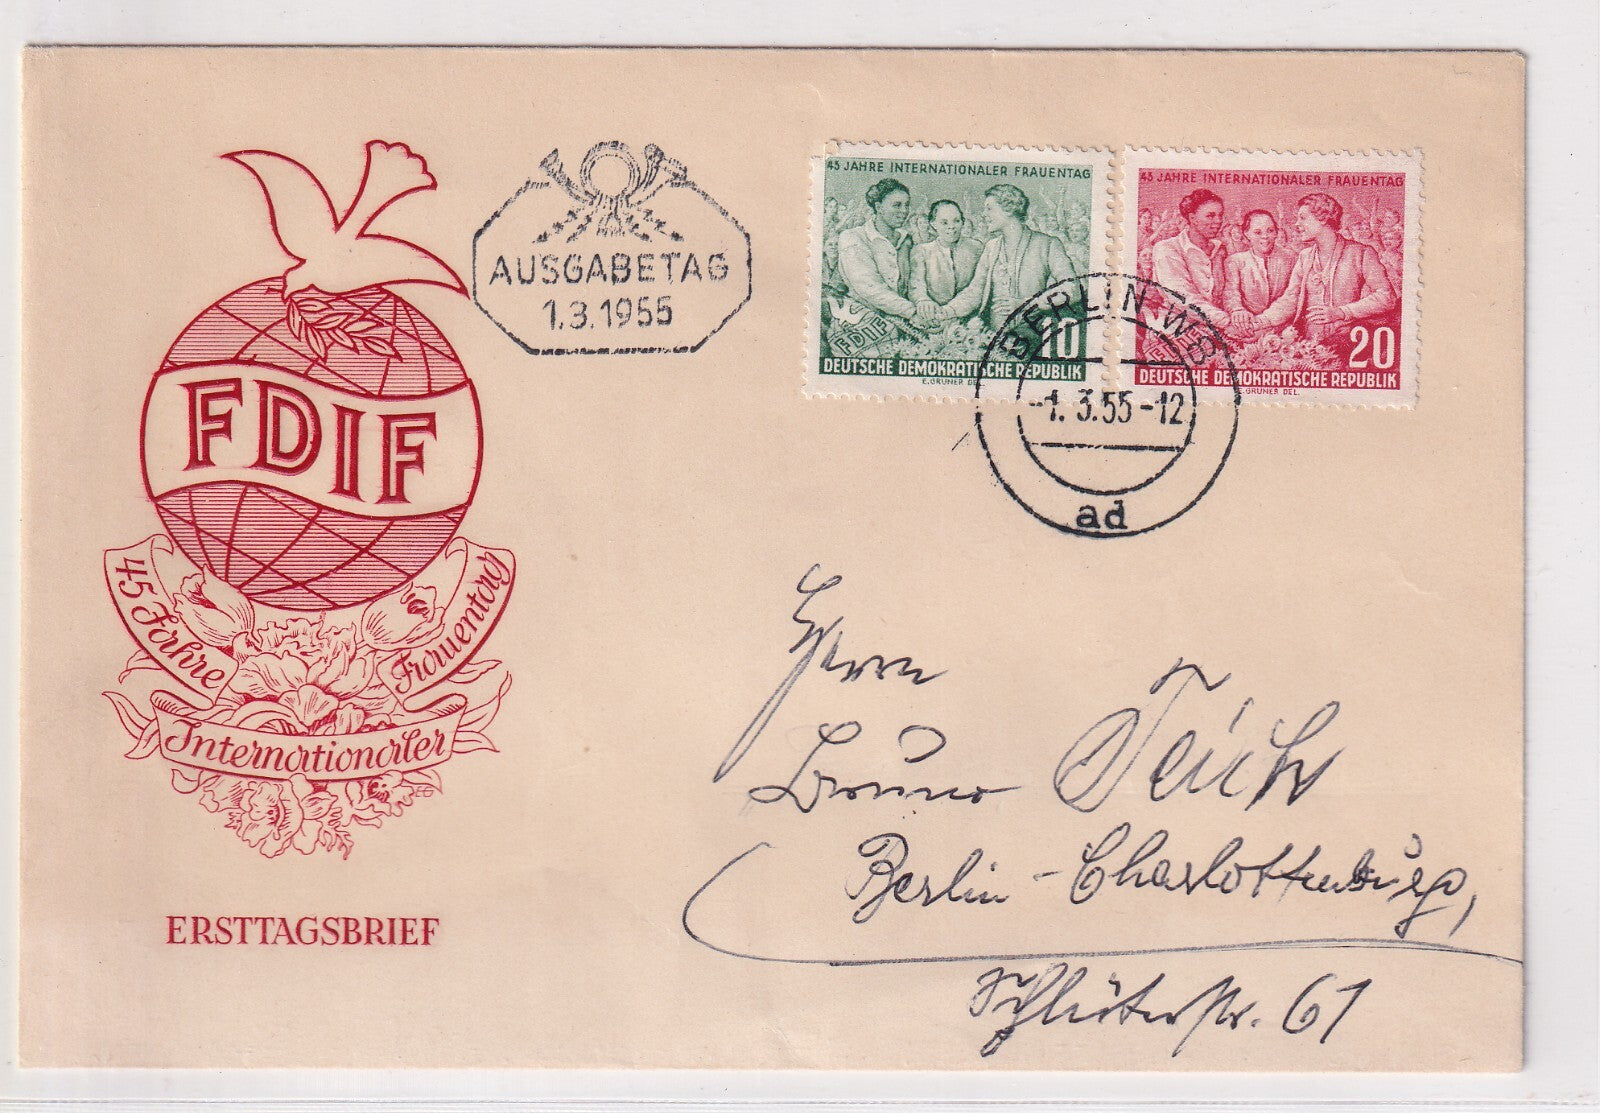 FDIF
45 Jahre
Internationaler
Frauentag
EG
ERSTTAGSBRIEF
AUSGABETAG
1.3.1955
45 JAHRE INTERNATIONALER FRAUENTAG
FDIF
10
DEUTSCHE DEMOKRATISCHE REPUBLIK
E.GRUNER DEL.
45 JAHRE INTERNATIONALER FRAUENTAG
20
DEUTSCHE DEMOKRATISCHE REPUBLIK
E.GRUNER DEL.
BERLIN W 8
-1. 3.55-12
ad
Herrn
Bruno Teich
Berlin-Charlottenburg,
Schlüterstr. 61